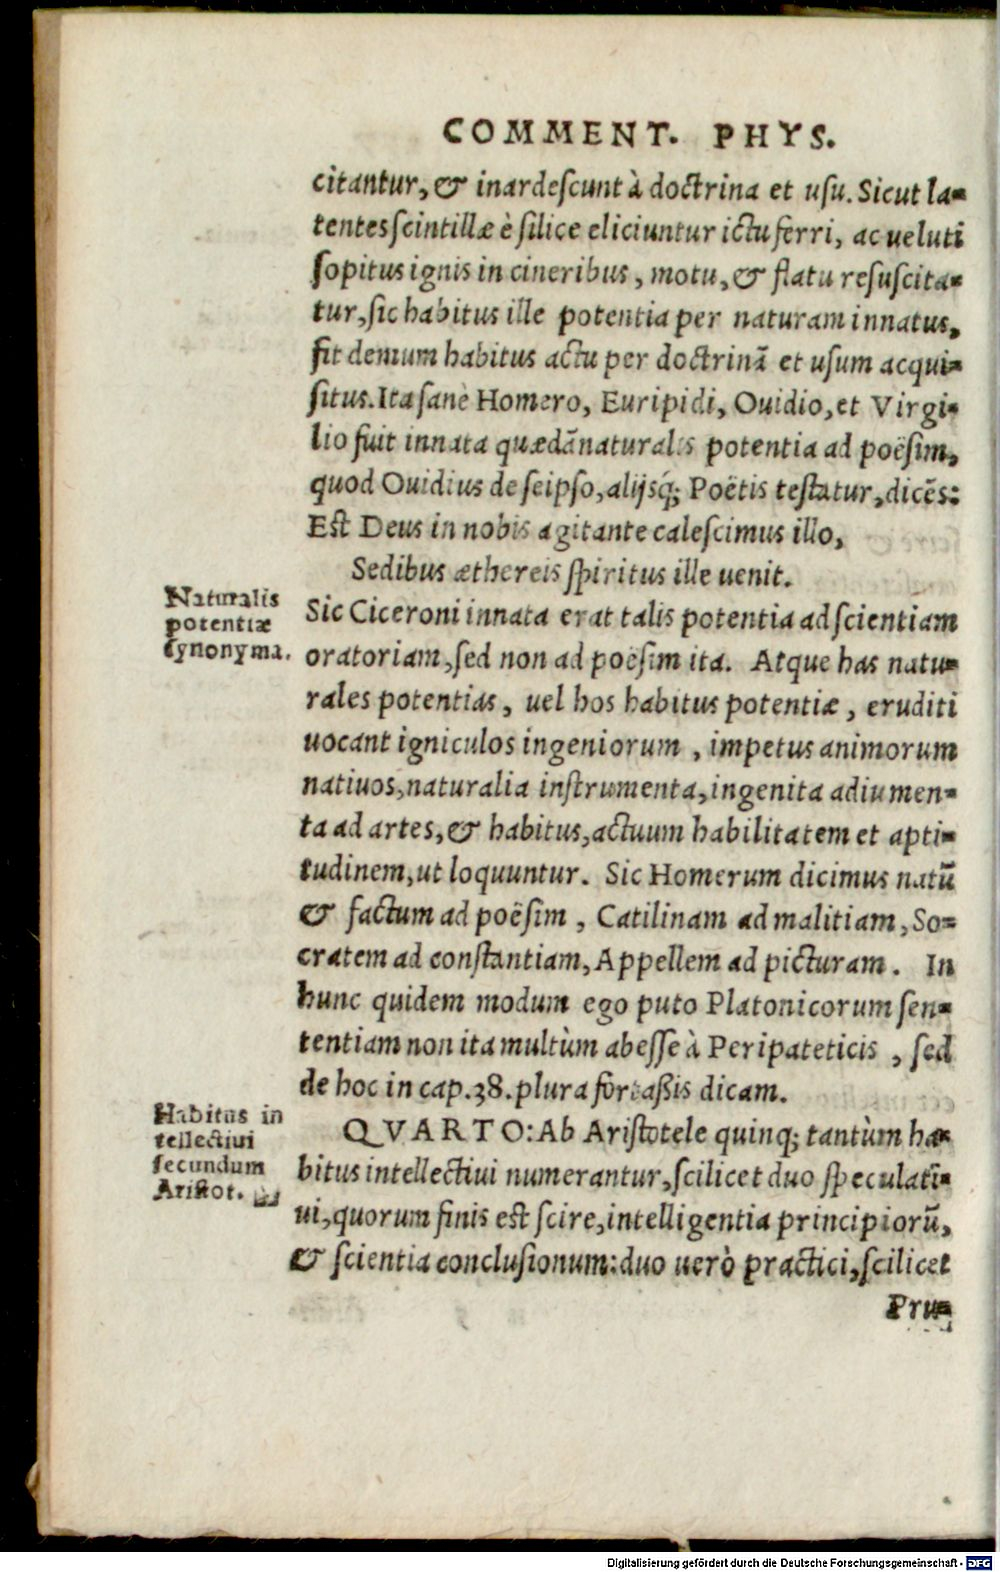 COMMENT. PHYS.
citantur, & inardeſcunt à doctrina et uſu. Sicut la-
tentes ſcintillæ è ſilice eliciuntur ictu ferri, ac ueluti
ſopitus ignis in cineribus, motu, & flatu reſuſcita-
tur, ſic habitus ille potentia per naturam innatus,
fit demum habitus actu per doctrinā et uſum acqui-
ſitus. Ita ſanè Homero, Euripidi, Ouidio, et Virgi-
lio fuit innata quædā naturalis potentia ad poëſim,
quod Ouidius de ſeipſo, alijsq́; Poëtis teſtatur, dicēs:
Eſt Deus in nobis agitante caleſcimus illo,
Sedibus æthereis ſpiritus ille uenit.
Naturalis
potentiæ
ſynonyma.
Sic Ciceroni innata erat talis potentia ad ſcientiam
oratoriam, ſed non ad poëſim ita. Atque has natu-
rales potentias, uel hos habitus potentiæ, eruditi
uocant igniculos ingeniorum, impetus animorum
natiuos, naturalia inſtrumenta, ingenita adiumen-
ta ad artes, & habitus, actuum habilitatem et apti-
tudinem, ut loquuntur. Sic Homerum dicimus natū
& factum ad poëſim, Catilinam ad malitiam, So-
cratem ad conſtantiam, Appellem ad picturam. In
hunc quidem modum ego puto Platonicorum ſen-
tentiam non ita multùm abeſſe à Peripateticis, ſed
de hoc in cap. 38. plura fortaßis dicam.
Habitus in
tellectiui
ſecundum
Ariſtot.
QVARTO: Ab Ariſtotele quinq; tantùm ha-
bitus intellectiui numerantur, ſcilicet duo ſpeculati-
ui, quorum finis eſt ſcire, intelligentia principiorū,
& ſcientia concluſionum: duo uerò practici, ſcilicet
Pru-
Digitalisierung gefördert durch die Deutsche Forschungsgemeinschaft - DFG